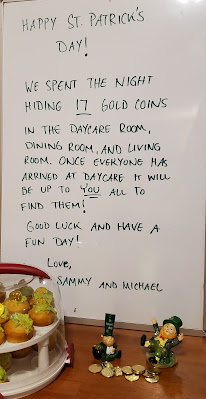 HAPPY ST. PATRICK'S
DAY!
WE SPENT THE NIGHT
HIDING 17 GOLD COINS
IN THE DAYCARE ROOM,
DINING ROOM, AND LIVING
ROOM. ONCE EVERYONE HAS
ARRIVED AT DAYCARE IT WILL
BE UP TO YOU ALL TO
FIND THEM!
GOOD LUCK AND HAVE A
FUN DAY!
LOVE,
SAMMY AND MICHAEL